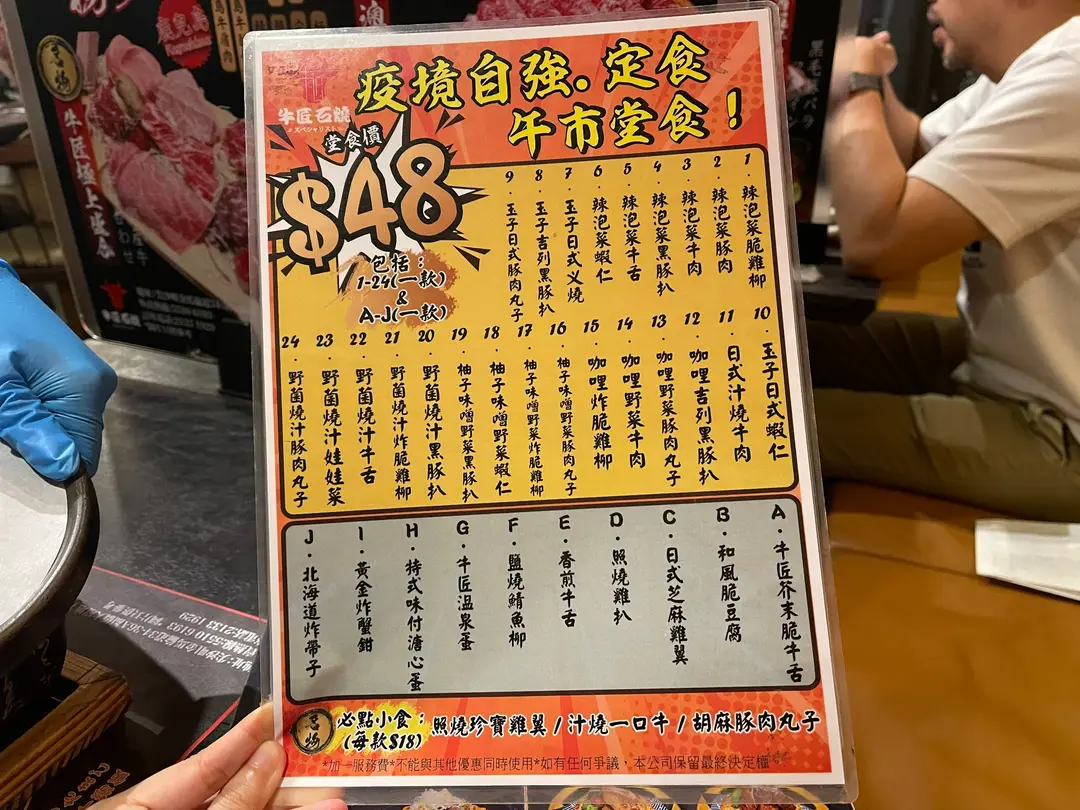 疫境自強.定食
午市堂食！
牛匠石燒
スペシャリスト
堂食價
$48
包括：
1-24(一款)
&
A-J(一款)
1．辣泡菜脆雞柳
2．辣泡菜豚肉
3．辣泡菜牛肉
4．辣泡菜黑豚扒
5．辣泡菜牛舌
6．辣泡菜蝦仁
7．玉子日式义燒
8．玉子吉列黑豚扒
9．玉子日式豚肉丸子
10．玉子日式蝦仁
11．日式汁燒牛肉
12．咖哩吉列黑豚扒
13．咖哩野菜豚肉丸子
14．咖哩野菜牛肉
15．咖哩炸脆雞柳
16．柚子味噌野菜豚肉丸子
17．柚子味噌野菜炸脆雞柳
18．柚子味噌野菜蝦仁
19．柚子味噌野菜黑豚扒
20．野菌燒汁黑豚扒
21．野菌燒汁炸脆雞柳
22．野菌燒汁牛舌
23．野菌燒汁娃娃菜
24．野菌燒汁豚肉丸子
A．牛匠芥末脆牛舌
B．和風脆豆腐
C．日式芝麻雞翼
D．照燒雞扒
E．香煎牛舌
F．鹽燒鯖魚柳
G．牛匠温泉蛋
H．持式味付溏心蛋
I．黃金炸蟹鉗
J．北海道炸帶子
必點小食：照燒珍寶雞翼/汁燒一口牛/胡麻豚肉丸子
(每款$18)
*加一服務費*不能與其他優惠同時使用*如有任何爭議，本公司保留最終決定權
牛匠極上盛合
鹿兒島